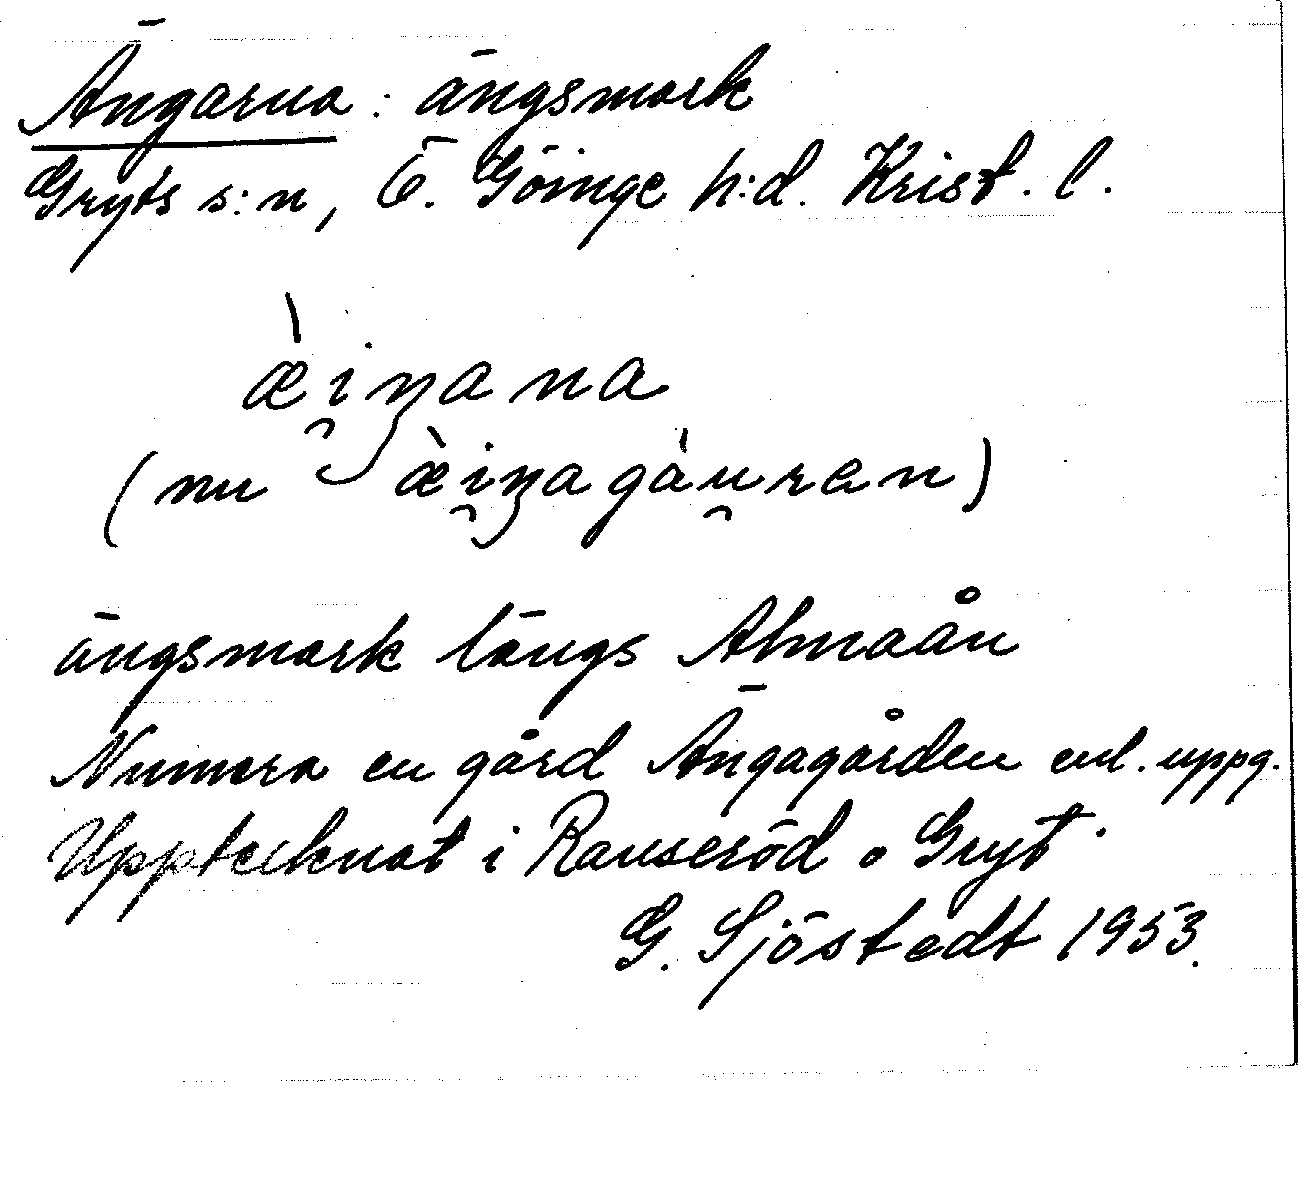 Ängarna : ängsmark
Gryts s:n, Ö. Göinge h:d. Krist. l.
æ̀i̯ŋana
(nu æ̀i̯ŋagáu̯ren)
ängsmark längs Almaån
Numera en gård Ängagården enl. uppg.
Upptecknat i Ranseröd o Gryt
G. Sjöstedt 1953.